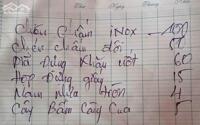 Chén Chấm inox - 100
Chén Chấm đôi
Dĩa Đựng Khăn ướt 60
Hộp Đựng giấy 15
Nắm Nửa tròn 4
Cây Bấm Càng Cua 5